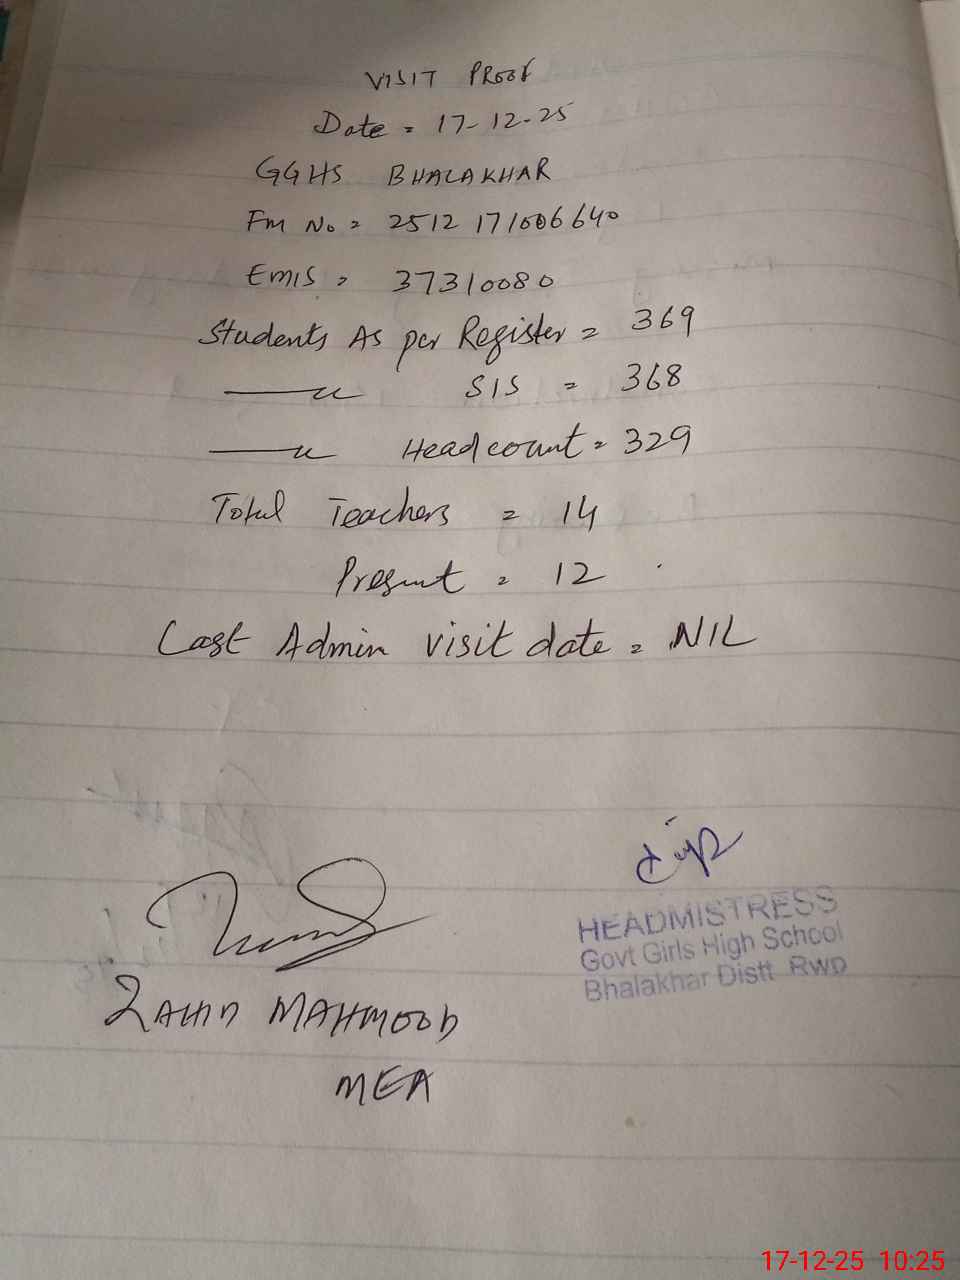 VISIT PROOF
Date = 17-12-25
GGHS BHALAKHAR
Fm No = 2512 171006640
EMIS = 37310080
Students As per Register = 369
—〃 SIS = 368
—〃 Headcount = 329
Total Teachers = 14
Present = 12
Last Admin visit date = NIL
HEADMISTRESS
Govt Girls High School
Bhalakhar Distt RWD
ZAHID MAHMOOD
MEA
17-12-25 10:25